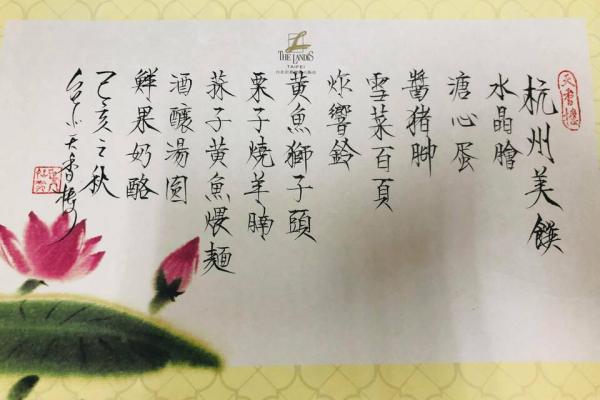 THE LANDIS
TAIPEI
天香樓
杭州美饌
水晶膾
溏心蛋
醬豬腳
雪菜百頁
炸響鈴
黃魚獅子頭
栗子燒羊腩
蒜子黃魚煨麵
酒釀湯圓
鮮果奶酪
己亥之秋
台北天香樓